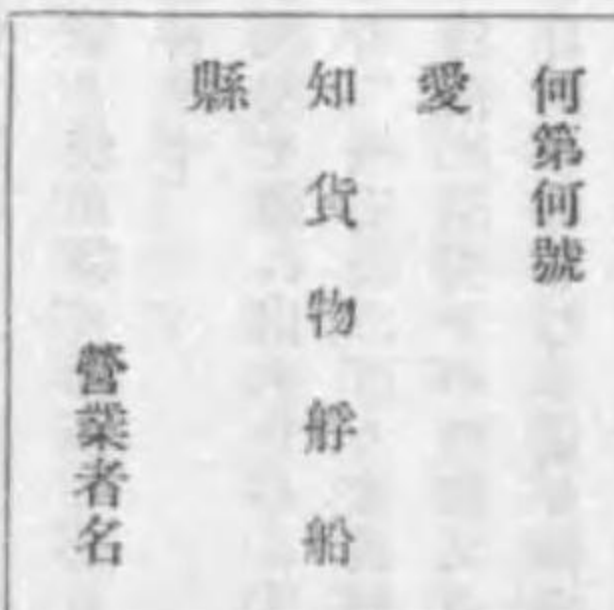 何第何號
愛
知貨物艀船
縣
營業者名